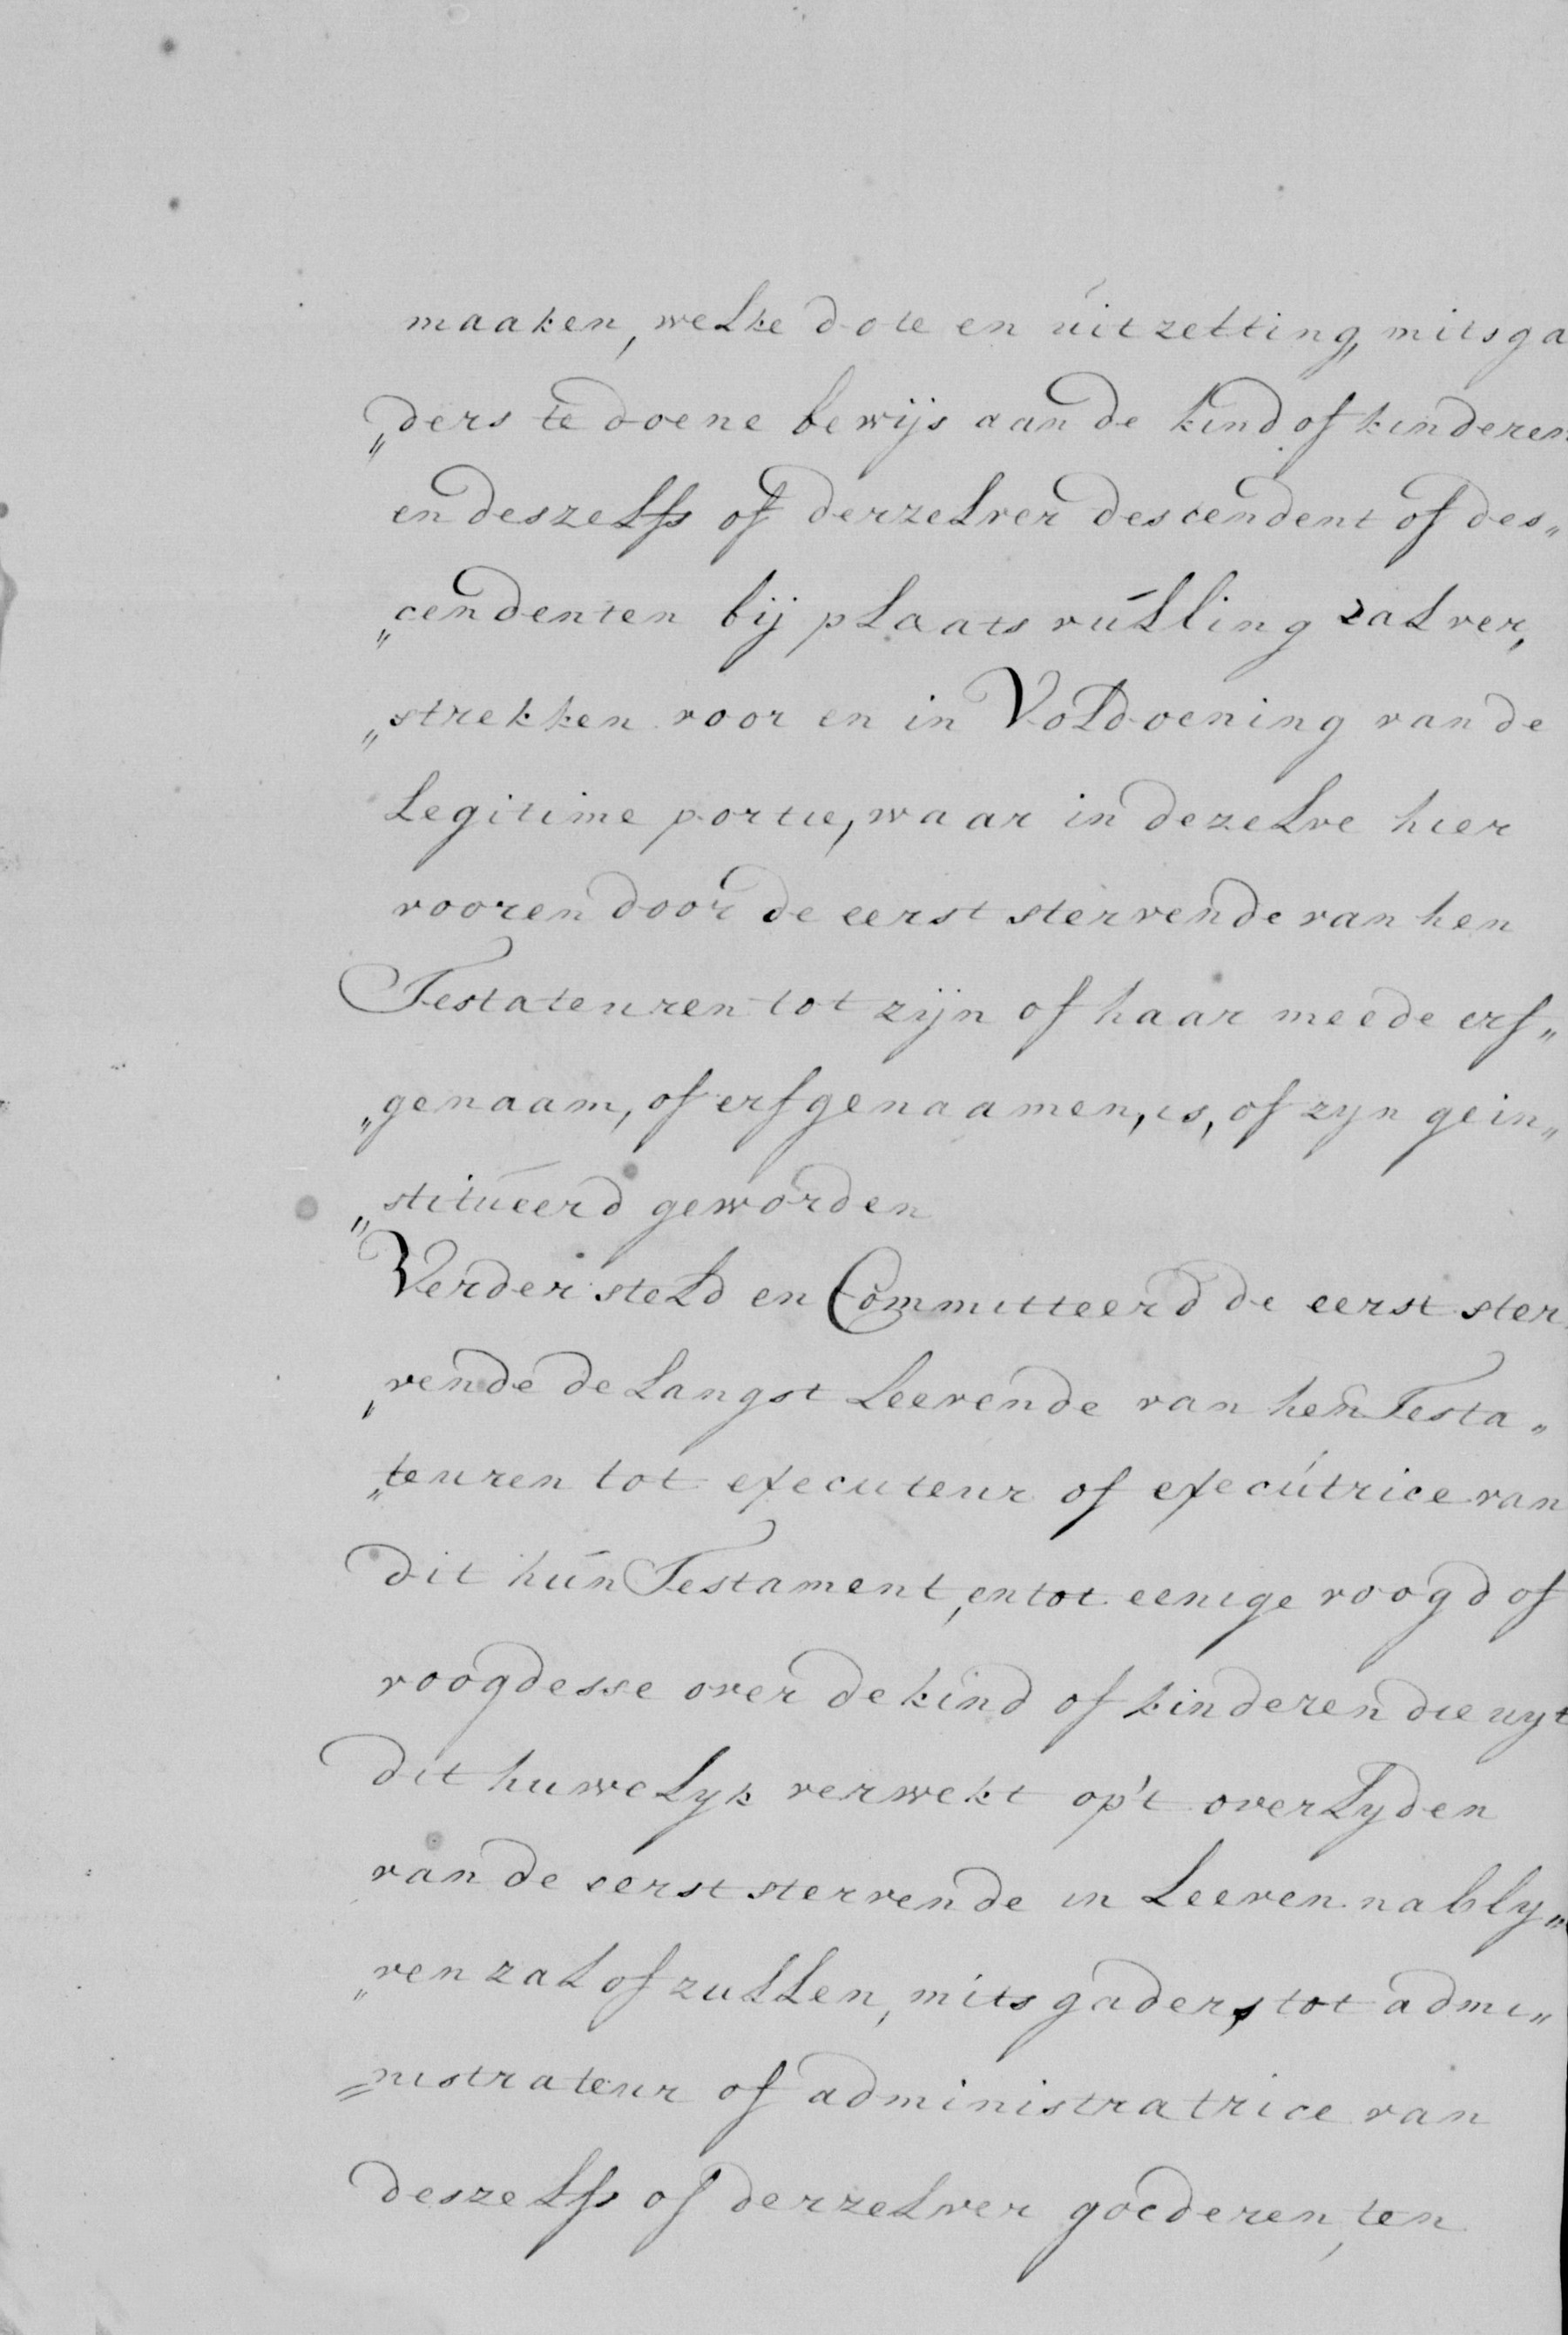 maaken, welke dote en uitzetting, mitsga
„ders te doene bewijs aan de kind of kinderen
en deszelfs of derzelver descendent of des„
„cendenten bij plaats vulling zal ver„
„strekken voor en in Voldoening van de
Legitime portie, waar in dezelve hier
vooren door de eerst stervende van hen
Testateuren tot zijn of haar meede erf„
„genaam, of erfgenaamen, is, of zyn gein„
„stitueerd geworden
Verder steld en Committeerd de eerst ster
„vende de Langst Leevende van hen Testa„
„teuren tot executeur of executrice van
dit hun Testament, en tot eenige voogd of
voogdesse over de kind of kinderen die uyt
dit huwelyk verwekt op't overlyden
van de eerst stervende in Leeven nably„
„ven zal of zullen, mitsgaders tot admi„
„nistrateur of administratrice van
deszelfs of derzelver goederen, ten